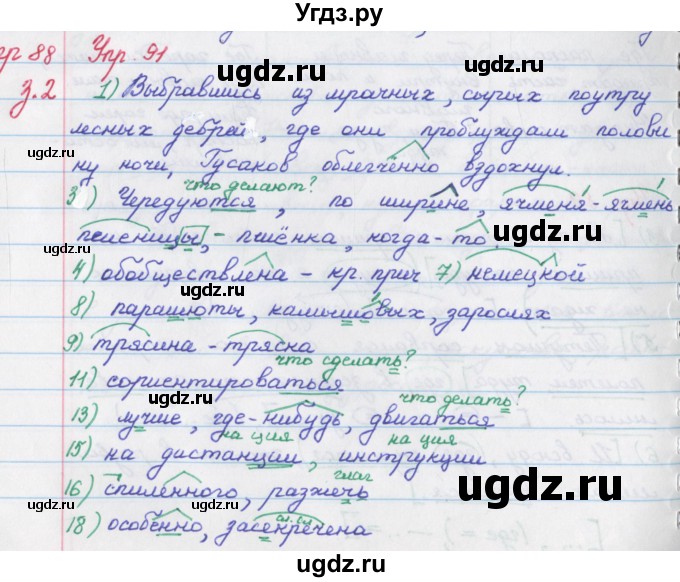 Угдз.ру
гр 88 Упр. 91
з.2 1) Выбравшись из мрачных, сырых поутру
лесных дебрей, где они проблуждали полови
ну ночи, Гусаков облегчённо вздохнул.
что делают?
3) Чередуются, по ширине, ячменя-ячмень
пшеницы, - пшёнка, когда-то.
4) обобществлена - кр. прич 7) немецкой
8) парашюты, камышовых, зарослях
9) трясина - тряска
что сделать?
11) сориентироваться
что делать?
13) лучше, где-нибудь, двигаться
на ция на ция
15) на дистанции, инструкции
глаг
16) спиленного, разжечь
сл.сл.
18) особенно, засекречена
ugdz.ru
ugdz.ru
ugdz.ru
ugdz.ru
ugdz.ru
ugdz.ru
ugdz.ru
ugdz.ru
ugdz.ru
ugdz.ru
Угдз.ру